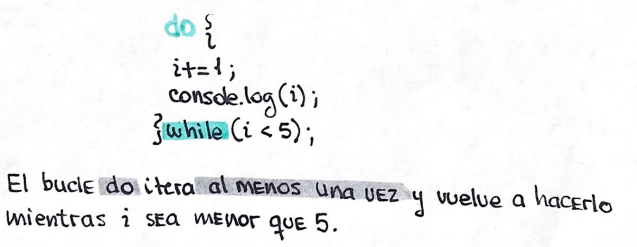 do {
i+=1;
console.log(i);
} while (i < 5);
El bucle do itera al menos una vez y vuelve a hacerlo
mientras i sea menor que 5.